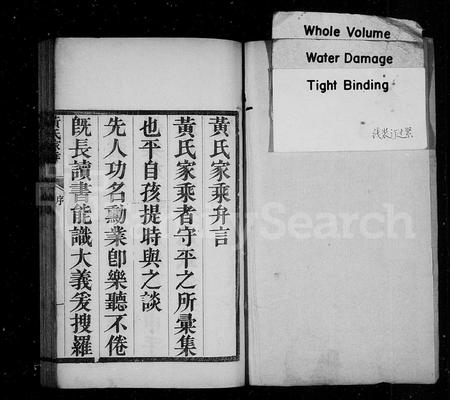 黃氏家乘弁言
黃氏家乘者守平之所彙集
也平自孩提時與之談
先人功名勳業卽樂聽不倦
旣長讀書能識大義爰搜羅
黃氏家乘
序
一
Whole Volume
Water Damage
Tight Binding
FamilySearch